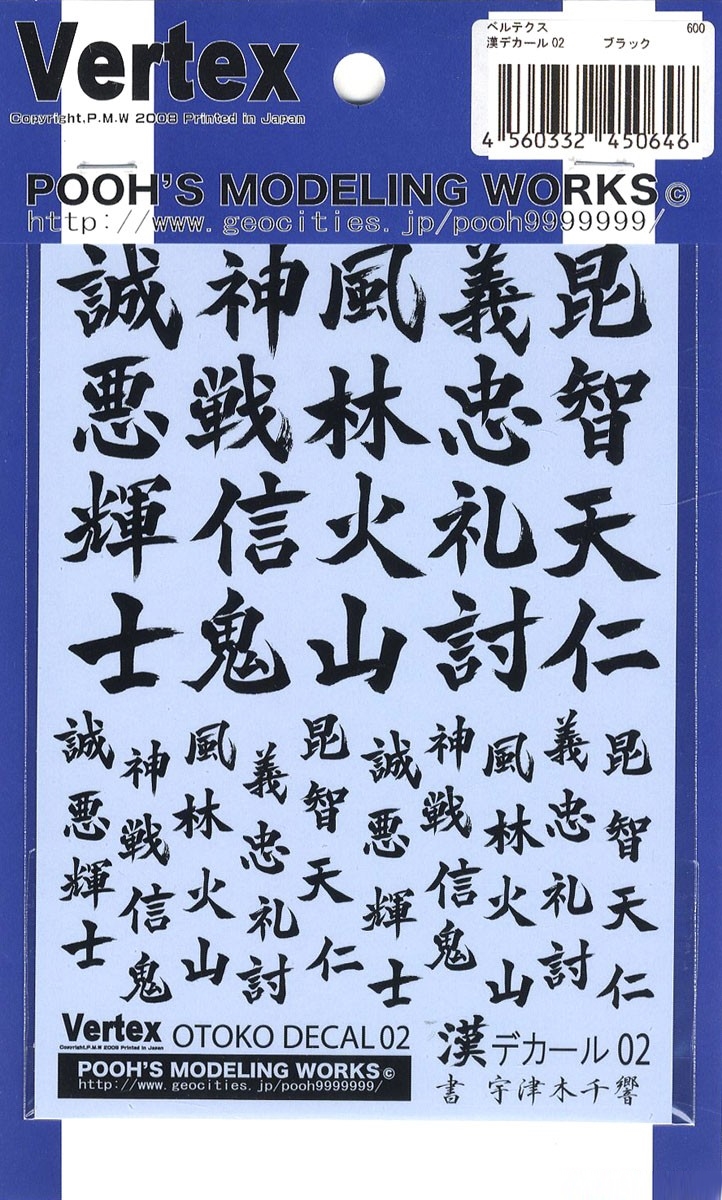 Vertex
Copyright.P.M.W 2008 Printed in Japan
ベルテクス 600
漢デカール02 ブラック
4 560332 450646
POOH'S MODELING WORKS©
http://www.geocities.jp/pooh9999999/
誠 神 風 義 昆
悪 戦 林 忠 智
輝 信 火 礼 天
士 鬼 山 討 仁
誠 神 風 義 昆 誠 神 風 義 昆
悪 戦 林 忠 智 悪 戦 林 忠 智
輝 信 火 礼 天 輝 信 火 礼 天
士 鬼 山 討 仁 士 鬼 山 討 仁
Vertex OTOKO DECAL 02
Copyright.P.M.W 2008 Printed in Japan
POOH'S MODELING WORKS©
http://www.geocities.jp/pooh9999999/
漢デカール 02
書 宇津木千響